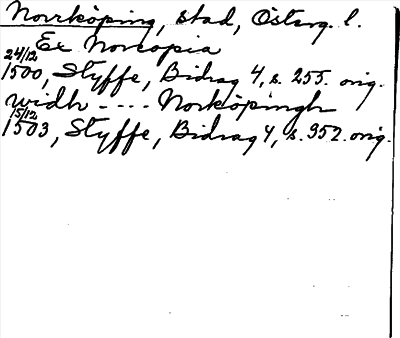 Norrköping, stad, Österg. l.
Ex Norcopia
24/12
1500, Styffe, Bidrag 4, s. 255. orig.
widh - - - - Norköpingh
15/12
1503, Styffe, Bidrag 4, s. 352. orig.